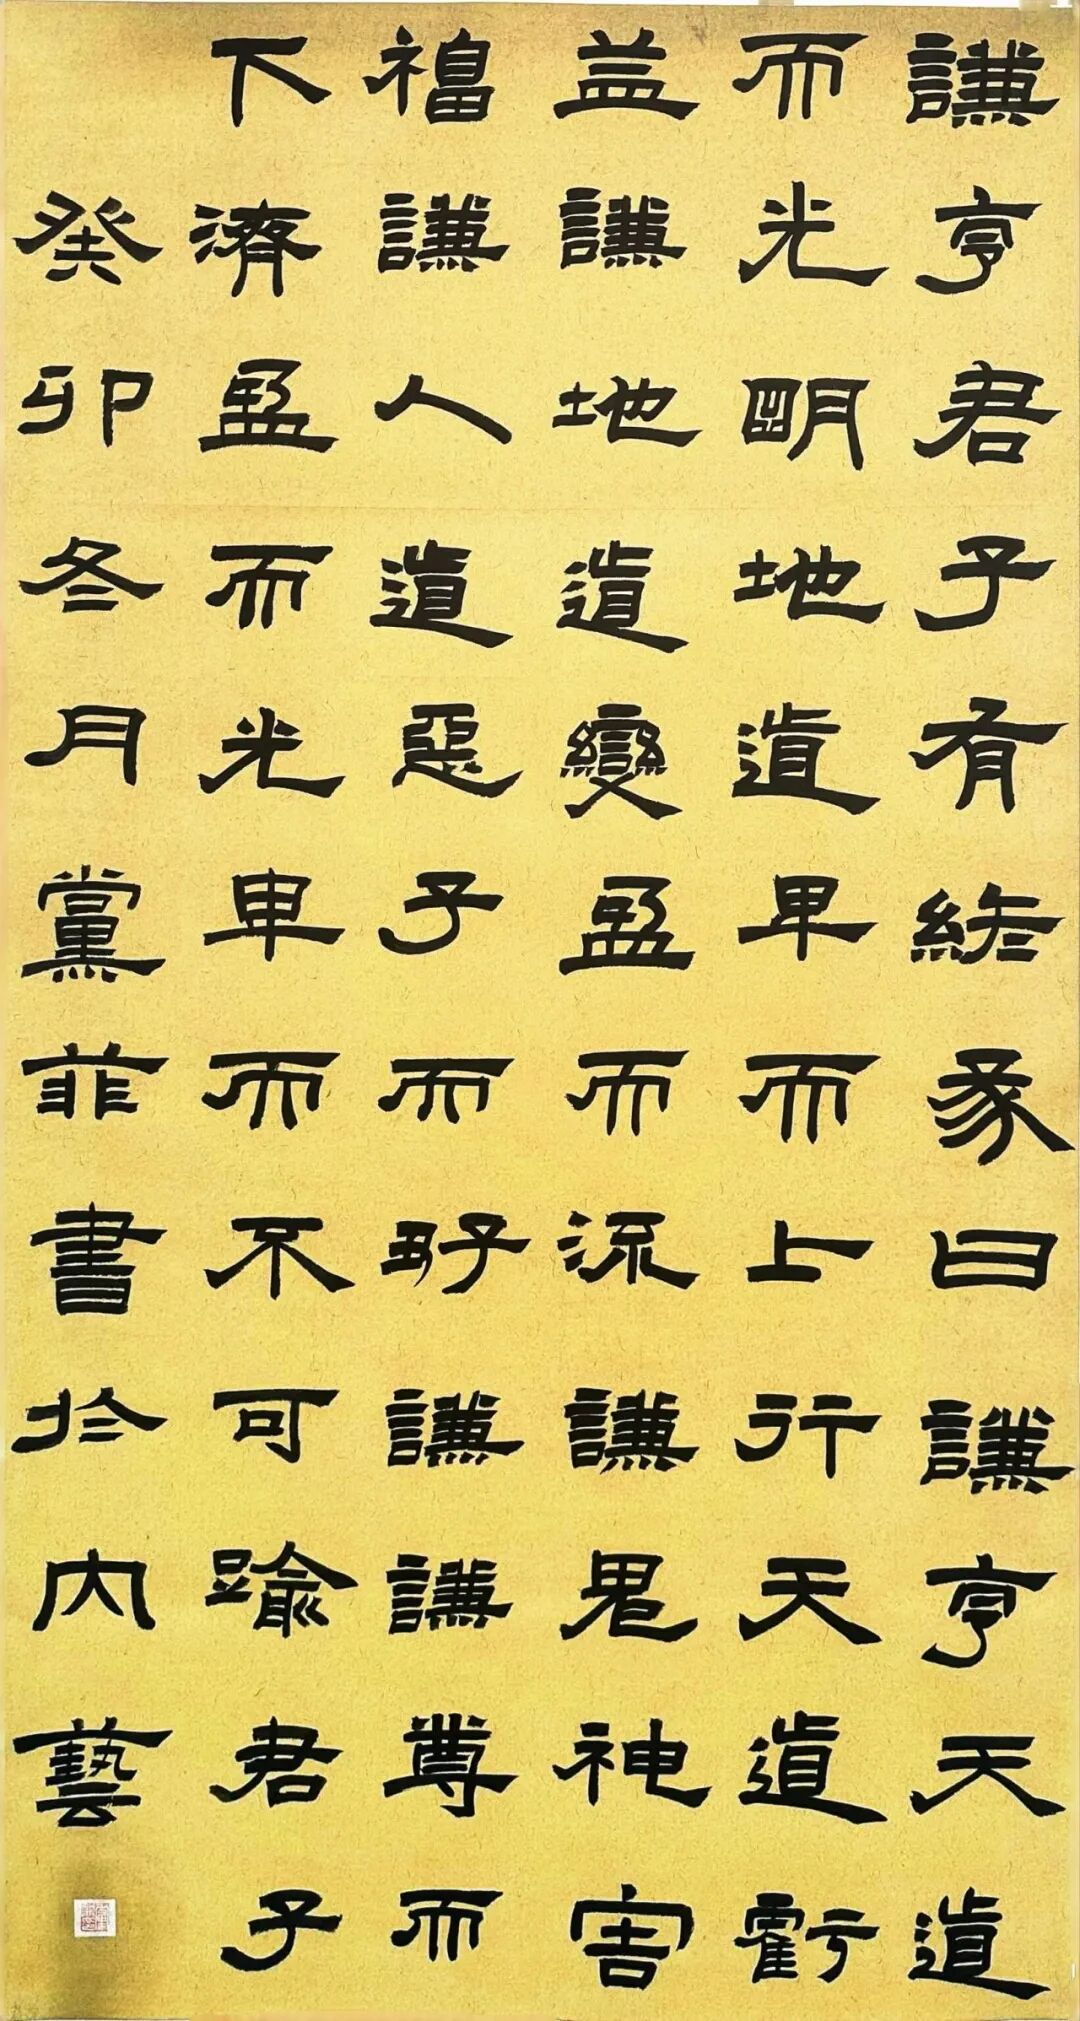 謙亨君子有終彖曰謙亨天道
而光明地道卑而上行天道虧
益謙地道變盈而流謙鬼神害
福謙人道惡子而好謙謙尊而
下濟盈而光卑而不可踰君子
癸卯冬月黨菲書於內藝